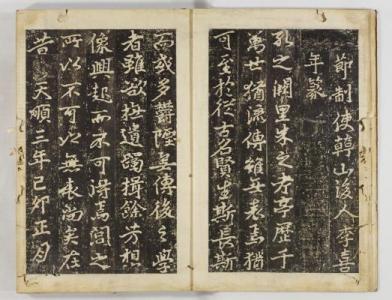 節制使韓山後人李喜
年篆
孔之闕里朱之考亭歷千
萬世猶流傳雖無表焉猶
可至於從古名賢生斯長斯
而或多鬱湮無傳後之學
者雖欲遺躅揖餘芳相
像興起而不可得焉閭之
所以不可以無表尚矣在
昔 天順三年己卯正月